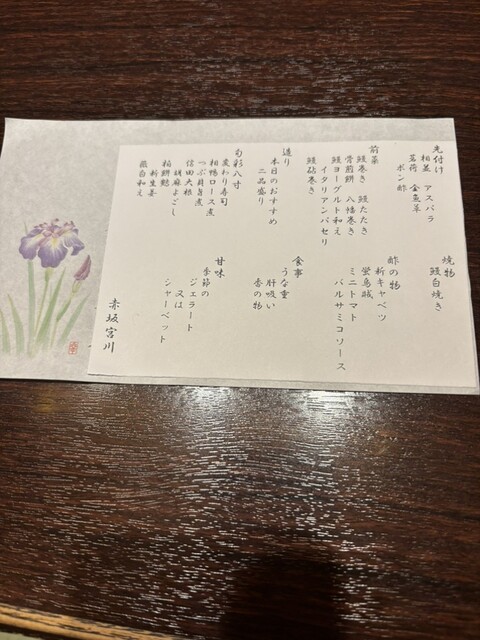 先付け
相並 アスパラ
茗荷 金魚草
ポン酢
前菜
鰻巻き 鰻たたき
骨煎餅 八幡巻き
鰻ヨーグルト和え
イタリアンパセリ
鰻砧巻き
造り
本日のおすすめ
二品盛り
旬彩八寸
変わり寿司
相鴨ロース煮
つぶ貝旨煮
信田大根
胡麻よごし
粕餅麩
新生姜
焼物
鰻白焼き
酢の物
新キャベツ
蛍烏賊
ミニトマト
バルサミコソース
食事
うな重
肝吸い
香の物
甘味
季節の
ジェラート
又は
シャーベット
赤坂宮川